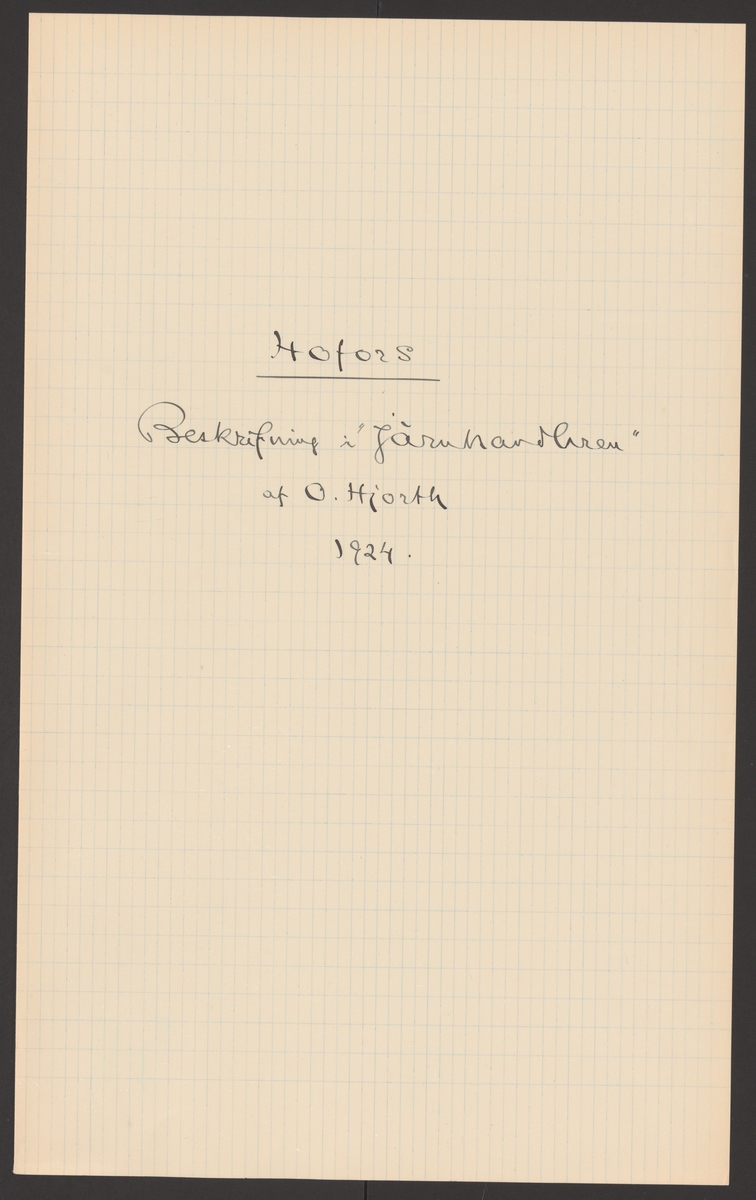 Hofors
Beskrifning i "Järnhandlaren"
af O. Hjorth
1924.